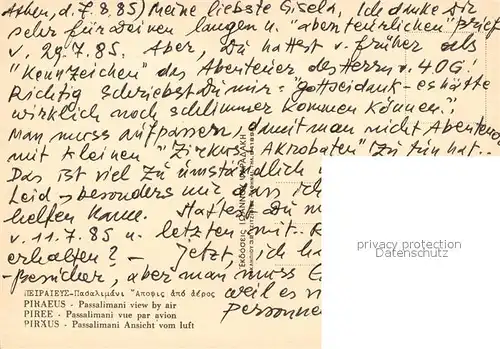 Athen, d. 7.8.85) Meine liebste Gisela, Ich danke Dir
sehr für deinen langen u. "abenteuerlichen" Brief
v. 29.7.85. Aber, Du hattest v. früher als
"Kennzeichen" das Abenteuer des Herrn v. 4.OG!
Richtig schriebst Du mir = "gottseidank - es hätte
wirklich noch schlimmer kommen können."
Man muss aufpassen, damit man nicht Abenteu
mit kleinen "Zirkus Akrobaten" zu tun hat..
Das ist viel zu umständlich
Leid, besonders mir dass ich
helfen kann. Hattest Du m
v. 11.7.85 u. letzten mit
erhalten? - Jetzt, ich ha
Besucher, aber man muss
weil es n
Personne
ΠΕΙΡΑΙΕΥΣ-Πασαλιμάνι Ἄποψις ἀπό ἀέρος
PIRAEUS - Passalimani view by air
PIREE - Passalimani vue par avion
PIRÄUS - Passalimani Ansicht vom luft
ΕΚΔΟΣΕΙΣ ΙΩΑΝΝΟΥ
privacy protection
www.AnsichtskartenExpress.de